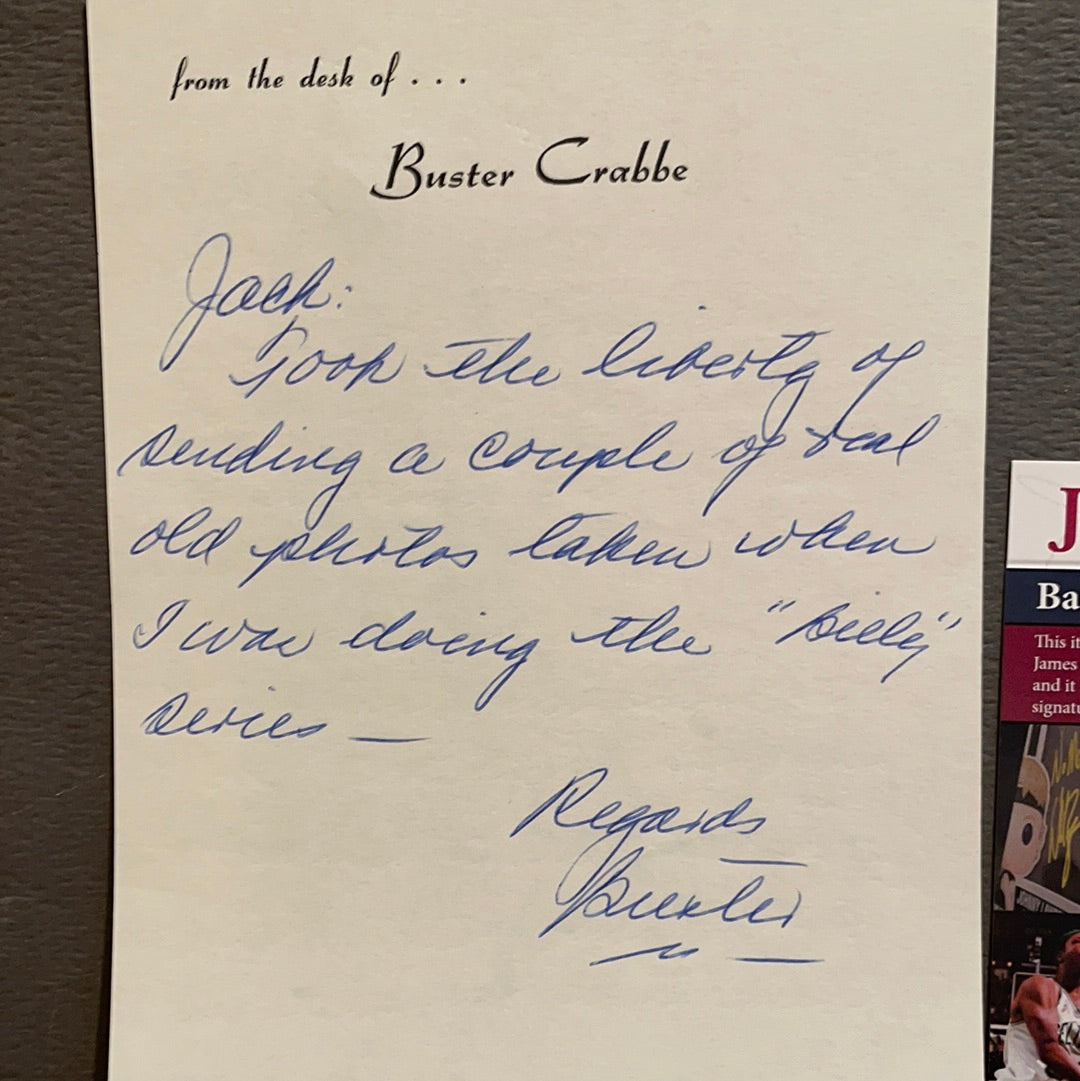 from the desk of . . .
Buster Crabbe
Jack:
Took the liberty of
sending a couple of real
old photos taken when
I was doing the "Billy"
series —
Regards
Buster
J
Ba
This it
James
and it
signatu